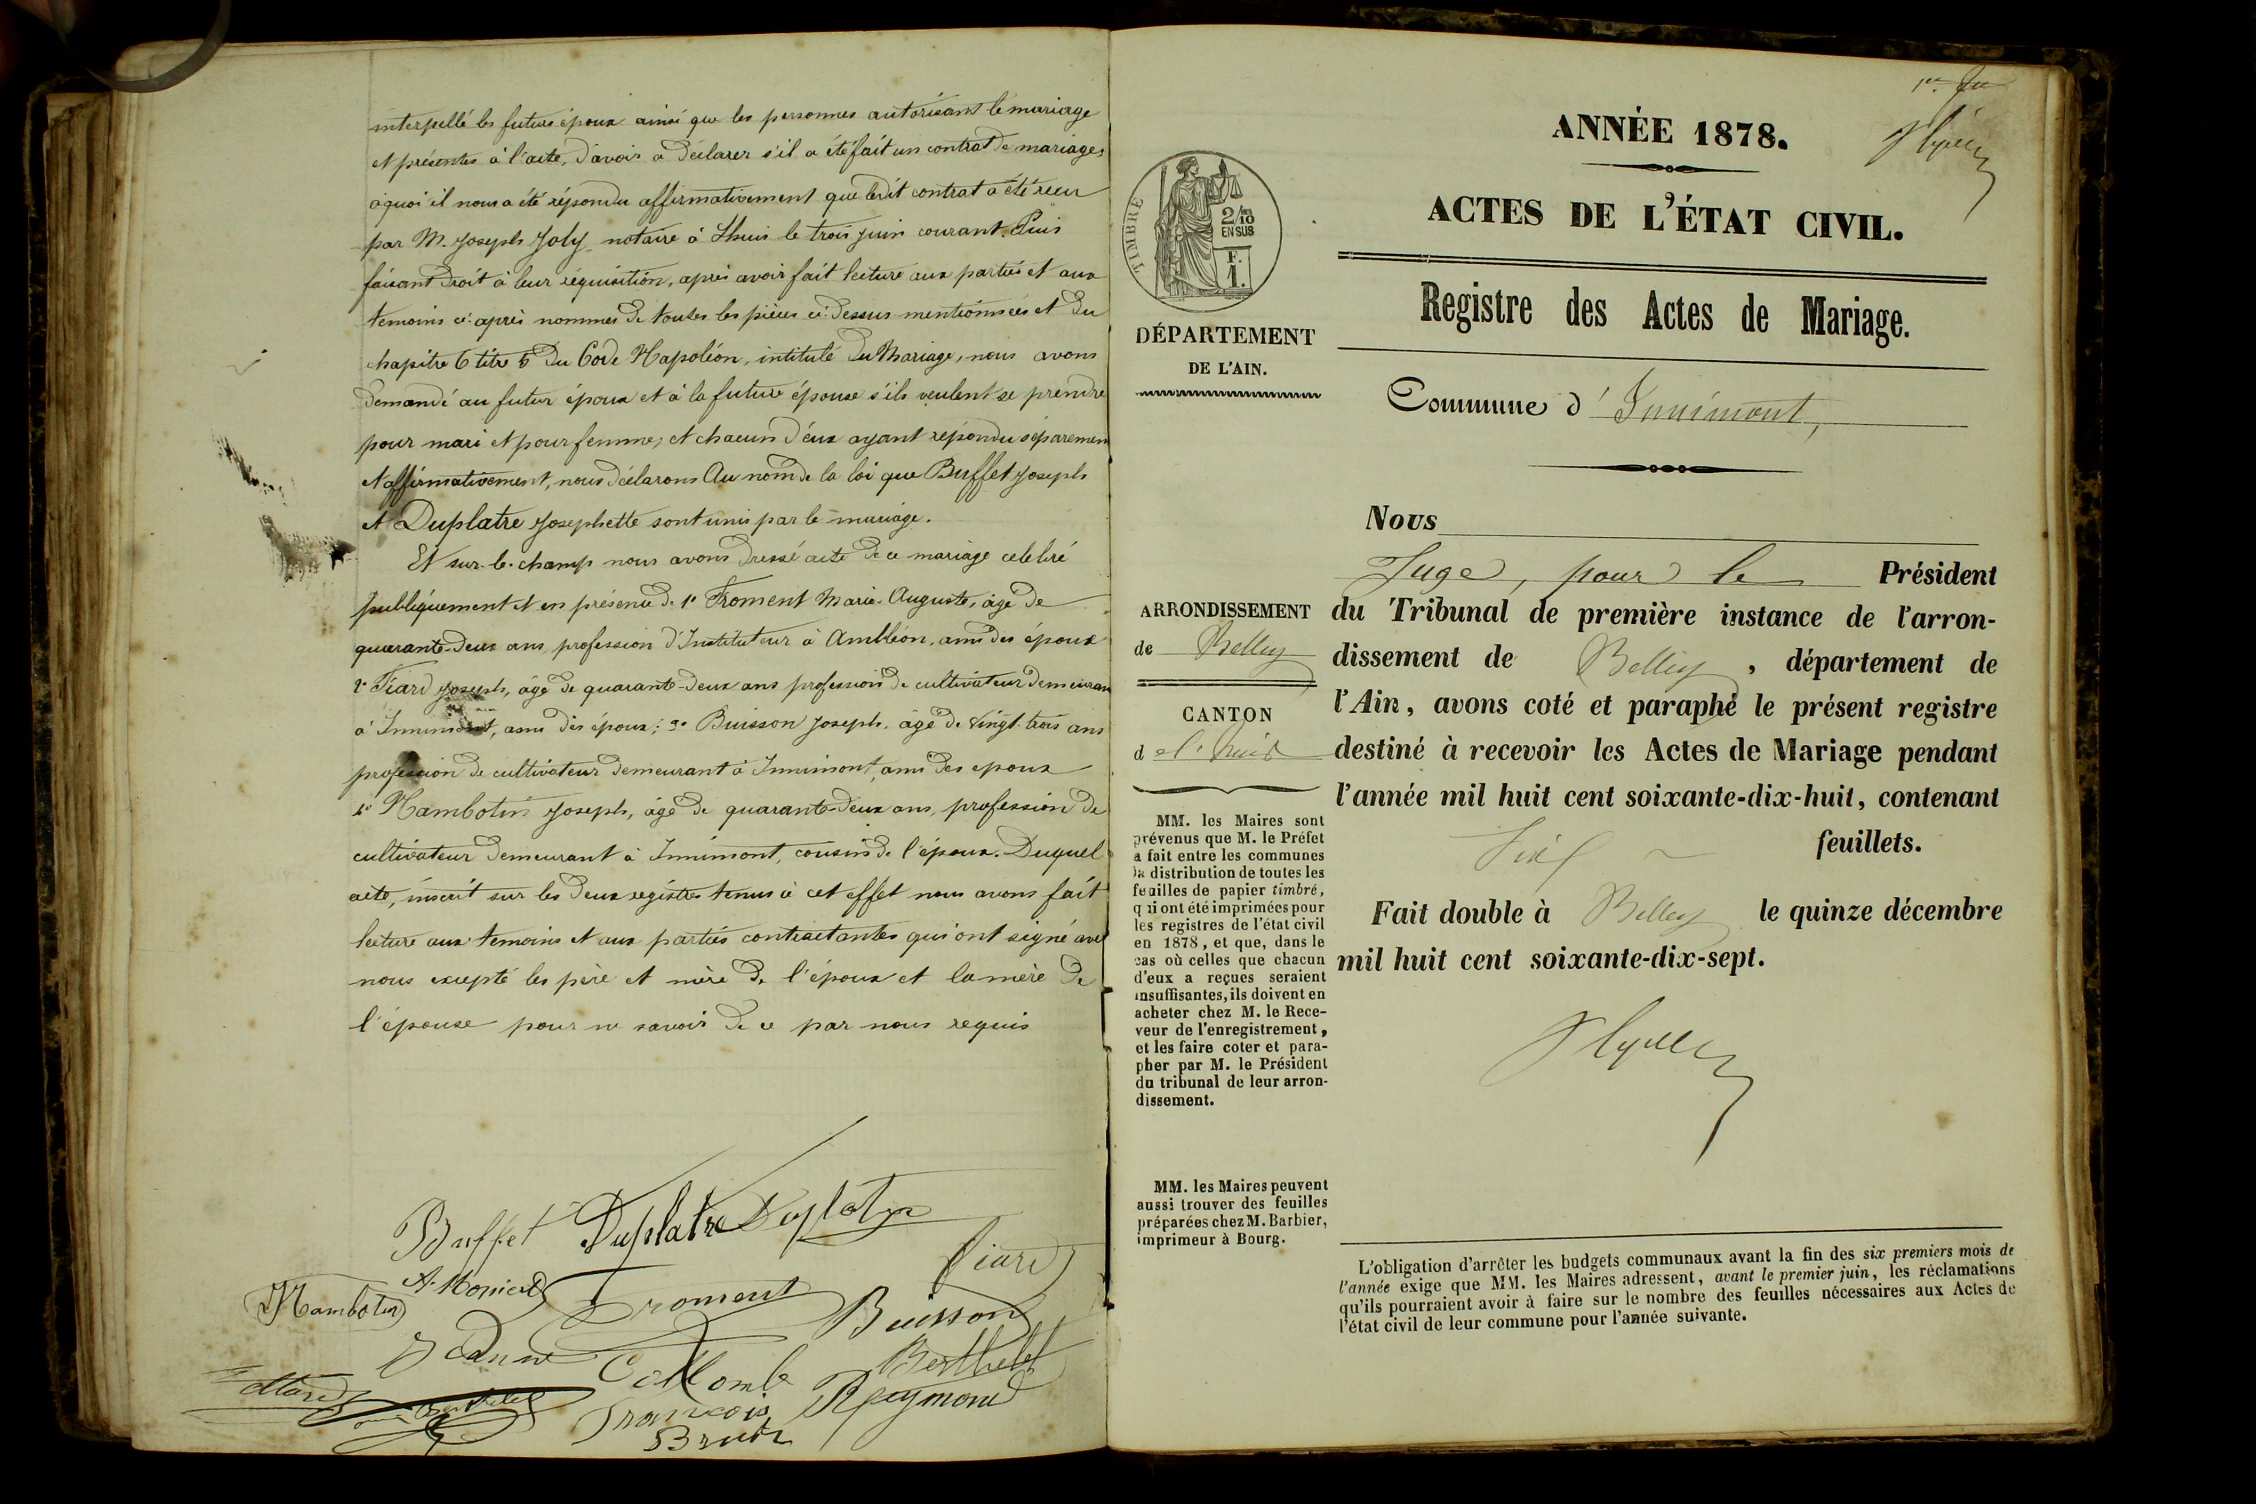 interpellé les futurs époux ainsi que les personnes autorisant le mariage
et présentes à l'acte, d'avoir à déclarer s'il a été fait un contrat de mariage,
à quoi il nous a été répondu affirmativement que ledit contrat a été reçu
par M. Joseph Joly notaire à Lhuis le trois juin courant. Puis
faisant droit à leur réquisition, après avoir fait lecture aux parties et aux
temoins ci-après nommés de toutes les pièces ci-dessus mentionnées et du
chapitre 6 titre 5 du Code Napoléon, intitulé du Mariage, nous avons
demandé au futur époux et à la future épouse s'ils veulent se prendre
pour mari et pour femme, et chacun d'eux ayant répondu séparemen
et affirmativement, nous déclarons Au nom de la loi que Buffet Joseph
et Duplatre Josephette sont unis par le mariage.
Et sur-le-champ nous avons dressé acte de ce mariage celebré
publiquement et en présence de 1° Froment Marie-Auguste, âgé de
quarante-deux ans, profession d'Instituteur à Ambléon, ami des époux
2° Fiard Joseph, âgé de quarante-deux ans profession de cultivateur demeuran
à Innimont, ami des époux; 3° Buisson Joseph, âgé de vingt-trois ans
profession de cultivateur demeurant à Innimont, ami des epoux
4° Mambotin Joseph, âgé de quarante-deux ans, profession de
cultivateur demeurant à Innimont, cousin de l'époux. Duquel
acte, inscrit sur les deux registres tenus à cet effet nous avons fait
lecture aux temoins et aux parties contractantes qui ont signé avec
nous excepté les père et mère de l'époux et la mère de
l'épouse pour ne savoir de ce par nous requis
Buffet Duplatre Duplatre
Fiard
Mambotin Froment
Buisson
Collomb Berthelet
François Reymond
1er
ANNÉE 1878.
ACTES DE L'ÉTAT CIVIL.
Registre des Actes de Mariage.
TIMBRE
2/10
EN SUS
F.
1.
DÉPARTEMENT
DE L'AIN.
Commune d'Innimont,
Nous
Juge, pour le Président
du Tribunal de première instance de l'arron-
dissement de Belley, département de
l'Ain, avons coté et paraphé le présent registre
destiné à recevoir les Actes de Mariage pendant
l'année mil huit cent soixante-dix-huit, contenant
Six feuillets.
Fait double à Belley le quinze décembre
mil huit cent soixante-dix-sept.
ARRONDISSEMENT
de Belley
CANTON
de Lhuis
MM. les Maires sont
prévenus que M. le Préfet
a fait entre les communes
la distribution de toutes les
feuilles de papier timbré,
qui ont été imprimées pour
les registres de l'état civil
en 1878, et que, dans le
cas où celles que chacun
d'eux a reçues seraient
insuffisantes, ils doivent en
acheter chez M. le Rece-
veur de l'enregistrement,
et les faire coter et para-
pher par M. le Président
du tribunal de leur arron-
dissement.
MM. les Maires peuvent
aussi trouver des feuilles
préparées chez M. Barbier,
imprimeur à Bourg.
L'obligation d'arrêter les budgets communaux avant la fin des six premiers mois de
l'année exige que MM. les Maires adressent, avant le premier juin, les réclamations
qu'ils pourraient avoir à faire sur le nombre des feuilles nécessaires aux Actes de
l'état civil de leur commune pour l'année suivante.